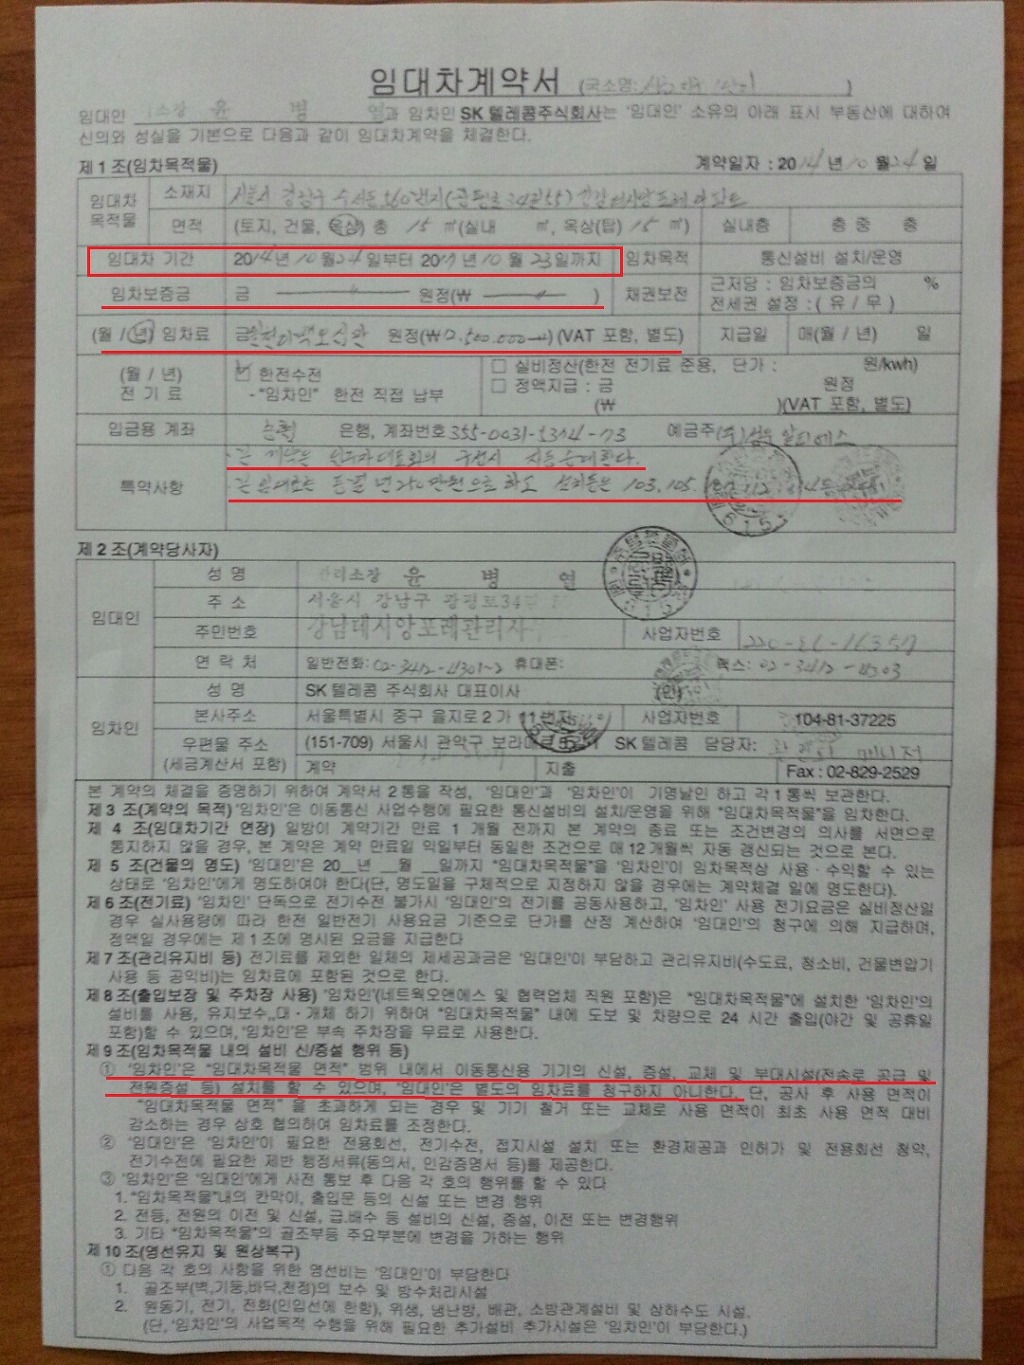 임대차계약서 (국소명:
임대인 소장 윤 병 열과 임차인 SK텔레콤주식회사는 '임대인' 소유의 아래 표시 부동산에 대하여
신의와 성실을 기본으로 다음과 같이 임대차계약을 체결한다.
제 1 조(임차목적물) 계약일자 : 2014년 10월 24일
임대차 목적물 소재지 서울시 강남구 수서동 560번지
면적 (토지, 건물, 옥상) 총 15 ㎡(실내 ㎡, 옥상(탑) 15 ㎡) 실내층 층 중 층
임대차 기간 2014년 10월 24일부터 2017년 10월 23일까지 임차목적 통신설비 설치/운영
임차보증금 금 원정(₩ ) 채권보전 근저당 : 임차보증금의 % 전세권 설정 : ( 유 / 무 )
(월 / 년) 임차료 금 원정(₩ 2,500,000) (VAT 포함, 별도) 지급일 매(월 / 년) 일
(월 / 년) 전 기 료 ☑ 한전수전 - "임차인" 한전 직접 납부
□ 실비정산(한전 전기료 준용, 단가 : 원/kwh)
□ 정액지급 : 금 원정
(₩ )(VAT 포함, 별도)
입금용 계좌 은행, 계좌번호 355-0031-5314-73 예금주
특약사항 본 계약은 입주자대표회의 구성시 자동승계한다.
년 250만원으로 하고 103, 105,
제 2 조(계약당사자)
임대인 성 명 관리소장 윤 병 열
주 소 서울시 강남구 광평로34길
주민번호 강남데시앙포레관리사 사업자번호
연 락 처 일반전화: 02-3412-4301~2 휴대폰: 팩스: 02-3412-4303
임차인 성 명 SK 텔레콤 주식회사 대표이사 (인)
본사주소 서울특별시 중구 을지로 2 가 11 번지 사업자번호 104-81-37225
우편물 주소 (세금계산서 포함) (151-709) 서울시 관악구 보라매로 SK텔레콤 담당자: 매니저
계약 지출 Fax : 02-829-2529
본 계약의 체결을 증명하기 위하여 계약서 2통을 작성, '임대인'과 '임차인'이 기명날인 하고 각 1 통씩 보관한다.
제 3 조(계약의 목적) '임차인'은 이동통신 사업수행에 필요한 통신설비의 설치/운영을 위해 "임대차목적물"을 임차한다.
제 4 조(임대차기간 연장) 일방이 계약기간 만료 1 개월 전까지 본 계약의 종료 또는 조건변경의 의사를 서면으로
통지하지 않을 경우, 본 계약은 계약 만료일 익일부터 동일한 조건으로 매 12개월씩 자동 갱신되는 것으로 본다.
제 5 조(건물의 명도) '임대인'은 20__년 __월 __일까지 "임대차목적물"을 '임차인'이 임차목적상 사용 · 수익할 수 있는
상태로 '임차인'에게 명도하여야 한다(단, 명도일을 구체적으로 지정하지 않을 경우에는 계약체결 일에 명도한다).
제 6 조(전기료) '임차인' 단독으로 전기수전 불가시 '임대인'의 전기를 공동사용하고, '임차인' 사용 전기요금은 실비정산일
경우 실사용량에 따라 한전 일반전기 사용요금 기준으로 단가를 산정 계산하여 '임대인'의 청구에 의해 지급하며,
정액일 경우에는 제 1 조에 명시된 요금을 지급한다
제 7 조(관리유지비 등) 전기료를 제외한 일체의 제세공과금은 '임대인'이 부담하고 관리유지비(수도료, 청소비, 건물변압기
사용 등 공익비)는 임차료에 포함된 것으로 한다.
제 8 조(출입보장 및 주차장 사용) '임차인'(네트웍오앤에스 및 협력업체 직원 포함)은 "임대차목적물"에 설치한 '임차인'의
설비를 사용, 유지보수,,대 · 개체 하기 위하여 "임대차목적물" 내에 도보 및 차량으로 24 시간 출입(야간 및 공휴일
포함)할 수 있으며, '임차인'은 부속 주차장을 무료로 사용한다.
제 9 조(임차목적물 내의 설비 신/증설 행위 등)
① '임차인'은 "임대차목적물 면적" 범위 내에서 이동통신용 기기의 신설, 증설, 교체 및 부대시설(전송로 공급 및
전원증설 등) 설치를 할 수 있으며, '임대인'은 별도의 임차료를 청구하지 아니한다. 단, 공사 후 사용 면적이
"임대차목적물 면적" 을 초과하게 되는 경우 및 기기 철거 또는 교체로 사용 면적이 최초 사용 면적 대비
감소하는 경우 상호 협의하여 임차료를 조정한다.
② '임대인'은 '임차인'이 필요한 전용회선, 전기수전, 접지시설 설치 또는 환경제공과 인허가 및 전용회선 청약,
전기수전에 필요한 제반 행정서류(동의서, 인감증명서 등)를 제공한다.
③ '임차인'은 '임대인'에게 사전 통보 후 다음 각 호의 행위를 할 수 있다
1. "임차목적물"내의 칸막이, 출입문 등의 신설 또는 변경 행위
2. 전등, 전원의 이전 및 신설, 급.배수 등 설비의 신설, 증설, 이전 또는 변경행위
3. 기타 "임차목적물"의 골조부등 주요부분에 변경을 가하는 행위
제 10 조(영선유지 및 원상복구)
① 다음 각 호의 사항을 위한 영선비는 '임대인'이 부담한다
1. 골조부(벽,기둥,바닥,천정)의 보수 및 방수처리시설
2. 원동기, 전기, 전화(인입선에 한함), 위생, 냉난방, 배관, 소방관계설비 및 상하수도 시설.
(단, '임차인'의 사업목적 수행을 위해 필요한 추가설비 추가시설은 '임차인'이 부담한다.)